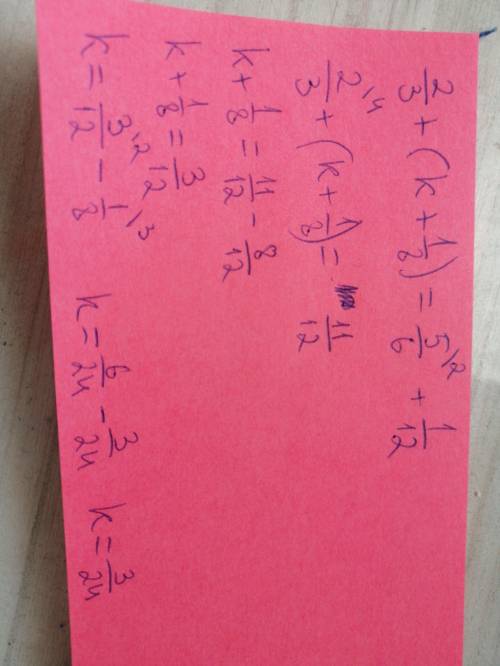 2/3 + (k + 1/8) = 5\2/6 + 1/12
2\4/3 + (k + 1/8) = 11/12
k + 1/8 = 11/12 - 8/12
k + 1/8 = 3/12
k = 3\2/12 - 1\3/8 k = 6/24 - 3/24 k = 3/24